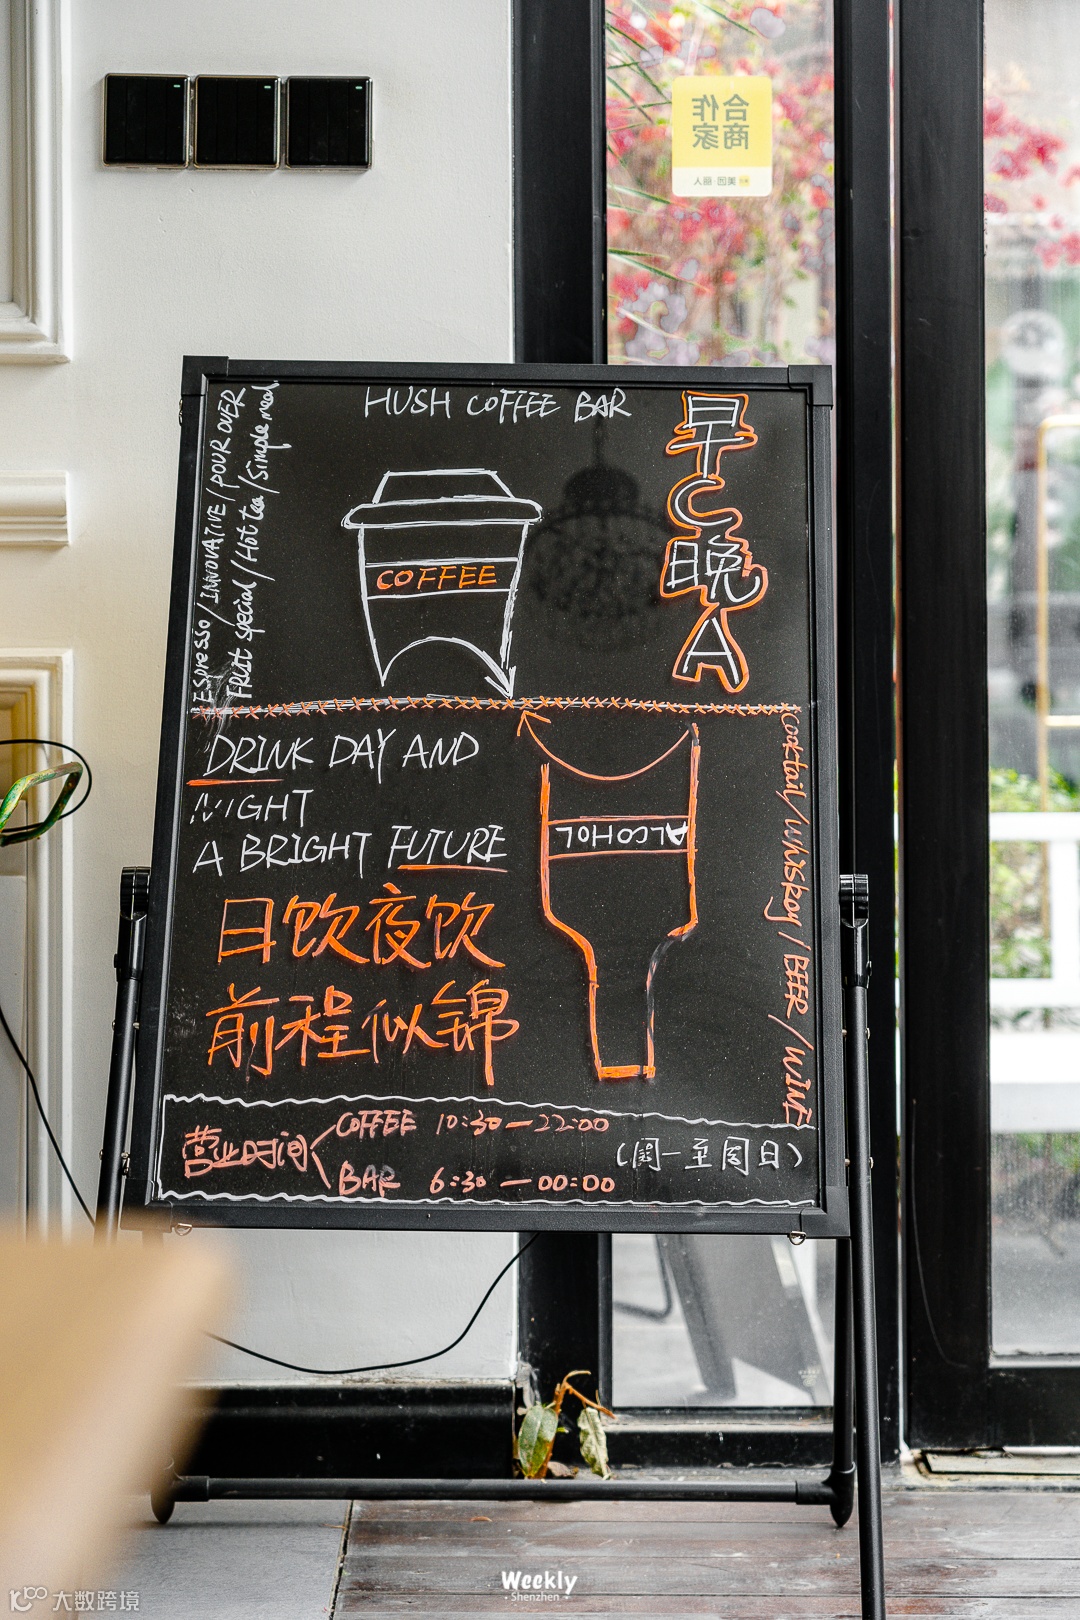 合作
商家
美团·丽人
HUSH COFFEE BAR
早C晚A
ESPresso / INNOVATIVE / POUR OVER
Fruit special / Hot tea / Simple meal
COFFEE
DRINK DAY AND
NIGHT
A BRIGHT FUTURE
ALCOHOL
日饮夜饮
前程似锦
Cocktail / Whiskey / BEER / WINE
营业时间
COFFEE 10:30 — 22:00
BAR 6:30 — 00:00
(周一至周日)
Weekly
Shenzhen
大数跨境